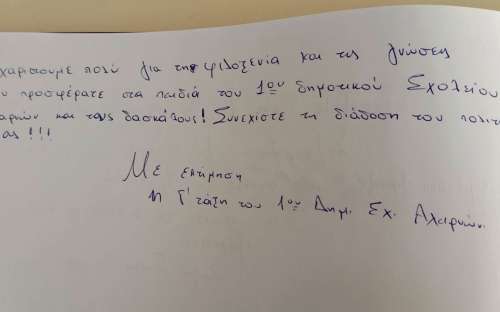 χαριστουμε πολύ για τη φιλοξενία και τις γνώσεις
υ προσφέρατε στα παιδιά του 1ου δημοτικού Σχολείου
αρνών και τους δασκάλους! Συνεχίστε τη διάδοση του πολιτ
ας!!!
Με εκτίμηση
η Γ' τάξη του 1ου Δημ. Σχ. Αχαρνών.